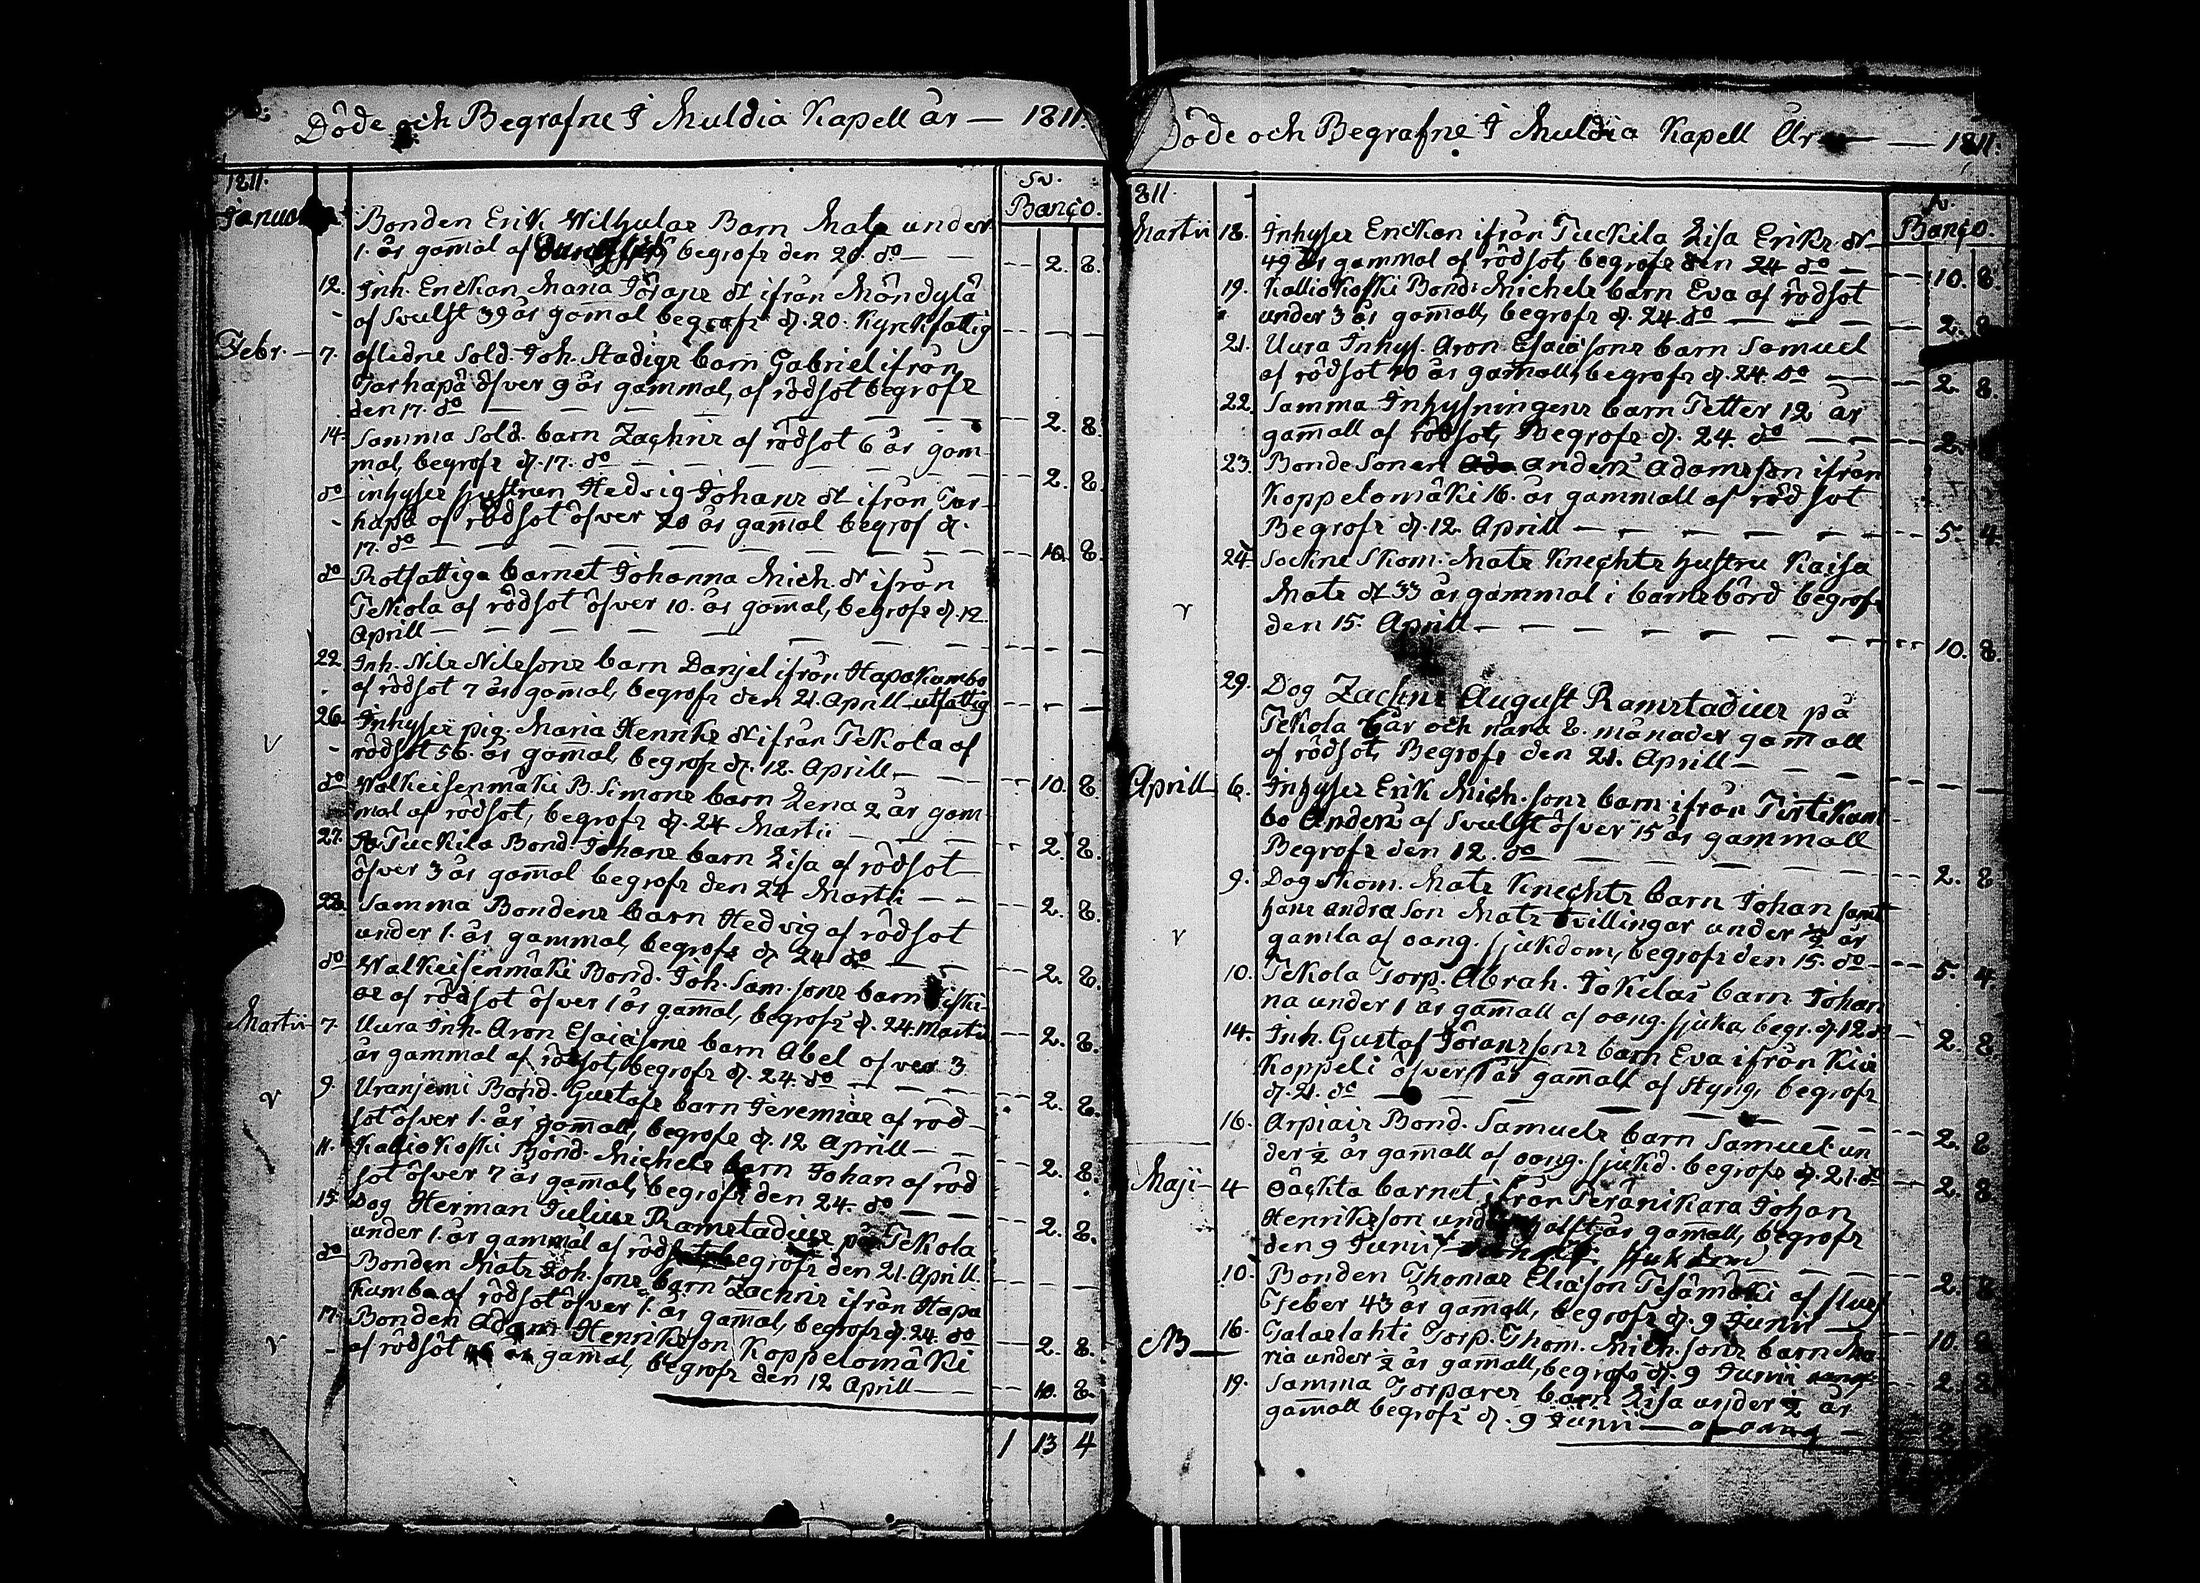 Döde och Begrafne I Muldia Kapell år — 1811.
1811.
Sv. Banco.
Januari
Bonden Erik Wilhulas Barn Mats under
1. år gamal af begrofs den 20. do — — 2. 8.
12. Inh. Enckan Maria Jörans dr ifrån Möndylä
af Svulst 39 år gamal begrofs d. 20. Kyrckfattig
Febr. — 7. aflidne Sold. Joh. Stadigs barn Gabriel ifrån
Tarhapä öfver 9 år gammal, af rödsot begrofs
den 17. do — — — 2. 8.
14. Samma Sold. barn Zachris af rödsot 6 år gam-
mal, begrofs d. 17. do — — — 2. 8.
do inhyses hustrun Hedvig Johans dr ifrån Tar-
hapä af rödsot öfver 20 år gamal begrof d.
17. do — — — 10. 8.
do Rotfattiga barnet Johanna Mich. dr ifrån
Tekola af rödsot öfver 10. år gamal, begrofs d. 12.
Aprill — — —
22 Inh. Nils Nilssons barn Danjel ifrån Hapakumbo
af rödsot 7 år gamal, begrofs den 21. Aprill utfattig
26. Inhyses pig. Maria Henriks dr ifrån Tekola af
rödsot 56. år gamal, begrofs d. 12. Aprill — — 10. 8.
do Walkeisenmäki B. Simons barn Lena 2 år gam-
mal af rödsot, begrofs d. 24 Martii — — 2. 8.
27. Tuckila Bond. Johans barn Lisa af rödsot
öfver 3 år gamal begrofs den 24 Martii — — 2. 8.
28. Samma Bondens barn Hedvig af rödsot
under 1. år gammal, begrofs d. 24 do — — 2. 8.
do Walkeisenmäki Bond. Joh. Sam. sons barn
af rödsot öfver 1 år gamal, begrofs d. 24. Martii 2. 8.
Martii 7. Uura Inh. Aron Esaiæsons barn Abel öfver 3
år gammal af rödsot, begrofs d. 24. do — — 2. 8.
9. Uranjemi Bond. Gustafs barn Jeremias af röd-
sot öfver 1. år gamall, begrofs d. 12 Aprill — — 2. 8.
11. Kallio Koski Bond. Michels barn Johan af röd
sot öfver 7 år gamal, begrofs den 24. do — — 2. 8.
15. Dog Herman Julius Ramstadius på Tekola
under 1. år gammal af rödsot begrofs den 21. Aprill.
do Bonden Mats Joh. sons barn Zachris ifrån Hapa
kumbo af rödsot öfver 1. år gamal, begrofs d. 24. do 2. 8.
17. Bonden Adam Henriksson Koppelomäki
af rödsot 46 år gamal, begrofs den 12 Aprill — — 10. 8.
1 13 4
Döde och Begrafne I Muldia Kapell År — 1811.
1811
Sv. Banco.
Martii 18. Inhyses Enckan ifrån Tuckila Lisa Eriks dr
49 år gammal af rödsot, begrofs den 24 do — 10. 8.
19. Kallio Koski Bond. Michels barn Eva af rödsot
under 3 år gamall, begrofs d. 24. do — — 2. 8
21. Uura Inhys. Aron Esaiæsons barn Samuel
af rödsot 10 år gamall, begrofs d. 24. do — 2. 8.
22. Samma Inhysningens barn Petter 12 år
gamall af rödsot, Begrofs d. 24. do — — 2.
23. Bonde Sonen Anders Adamsson ifrån
Koppelomäki 16. år gammall af rödsot
Begrofs d. 12. Aprill — — — 5. 4.
24. Sockne Skom. Mats Knechts hustru Kaisa
Mats dr 33 år gammal i barnsbörd begrofs
den 15. Aprill — — — 10. 8.
29. Dog Zachris August Ramstadius på
Tekola 6 år och nära 8. månader gamall
af rödsot, Begrofs den 21. Aprill — — —
Aprill 6. Inhyses Erik Mich. sons barn ifrån Tirtikum
bo Anders af Svulst öfver 15 år gammall
Begrofs den 12. do — — — 2. 8
9. Dog Skom. Mats Knechts barn Johan samt
hans andra son Mats tvillingar under ½ år
gamla af oang. sjukdom, begrofs den 15. do 5. 4.
10. Tekola Torp. Abrah. Jokelas barn Johan
na under 1 år gamall af oang. sjuka, begr. d. 12 do 2. 8
14. Inh. Gustaf Göranssons barn Eva ifrån Kivi
Koppeli öfver 1 år gamall af Styng, begrofs
d. 21. do — — — 2. 8
16. Arpiais Bond. Samuels barn Samuel un
der ½ år gamall af oang. sjukd. begrofs d. 21. do 2. 8
Maji — 4 Oäckta barnet ifrån Peränikara Johan
Henriksson under halft år gamall, begrofs
den 9 Junii sjukdom 2. 8
10. Bonden Thomas Eliæson Tesämäki af
Feber 43 år gamall, begrofs d. 9 Junii — 10. 8
NB — 16. Talaslahti Torp. Thom. Mich. sons barn Ma
ria under ½ år gamall, begrofs d. 9 Junii 2. 8
19. Samma Torpares barn Lisa under ½ år
gamall begrofs d. 9 Junii — af oang